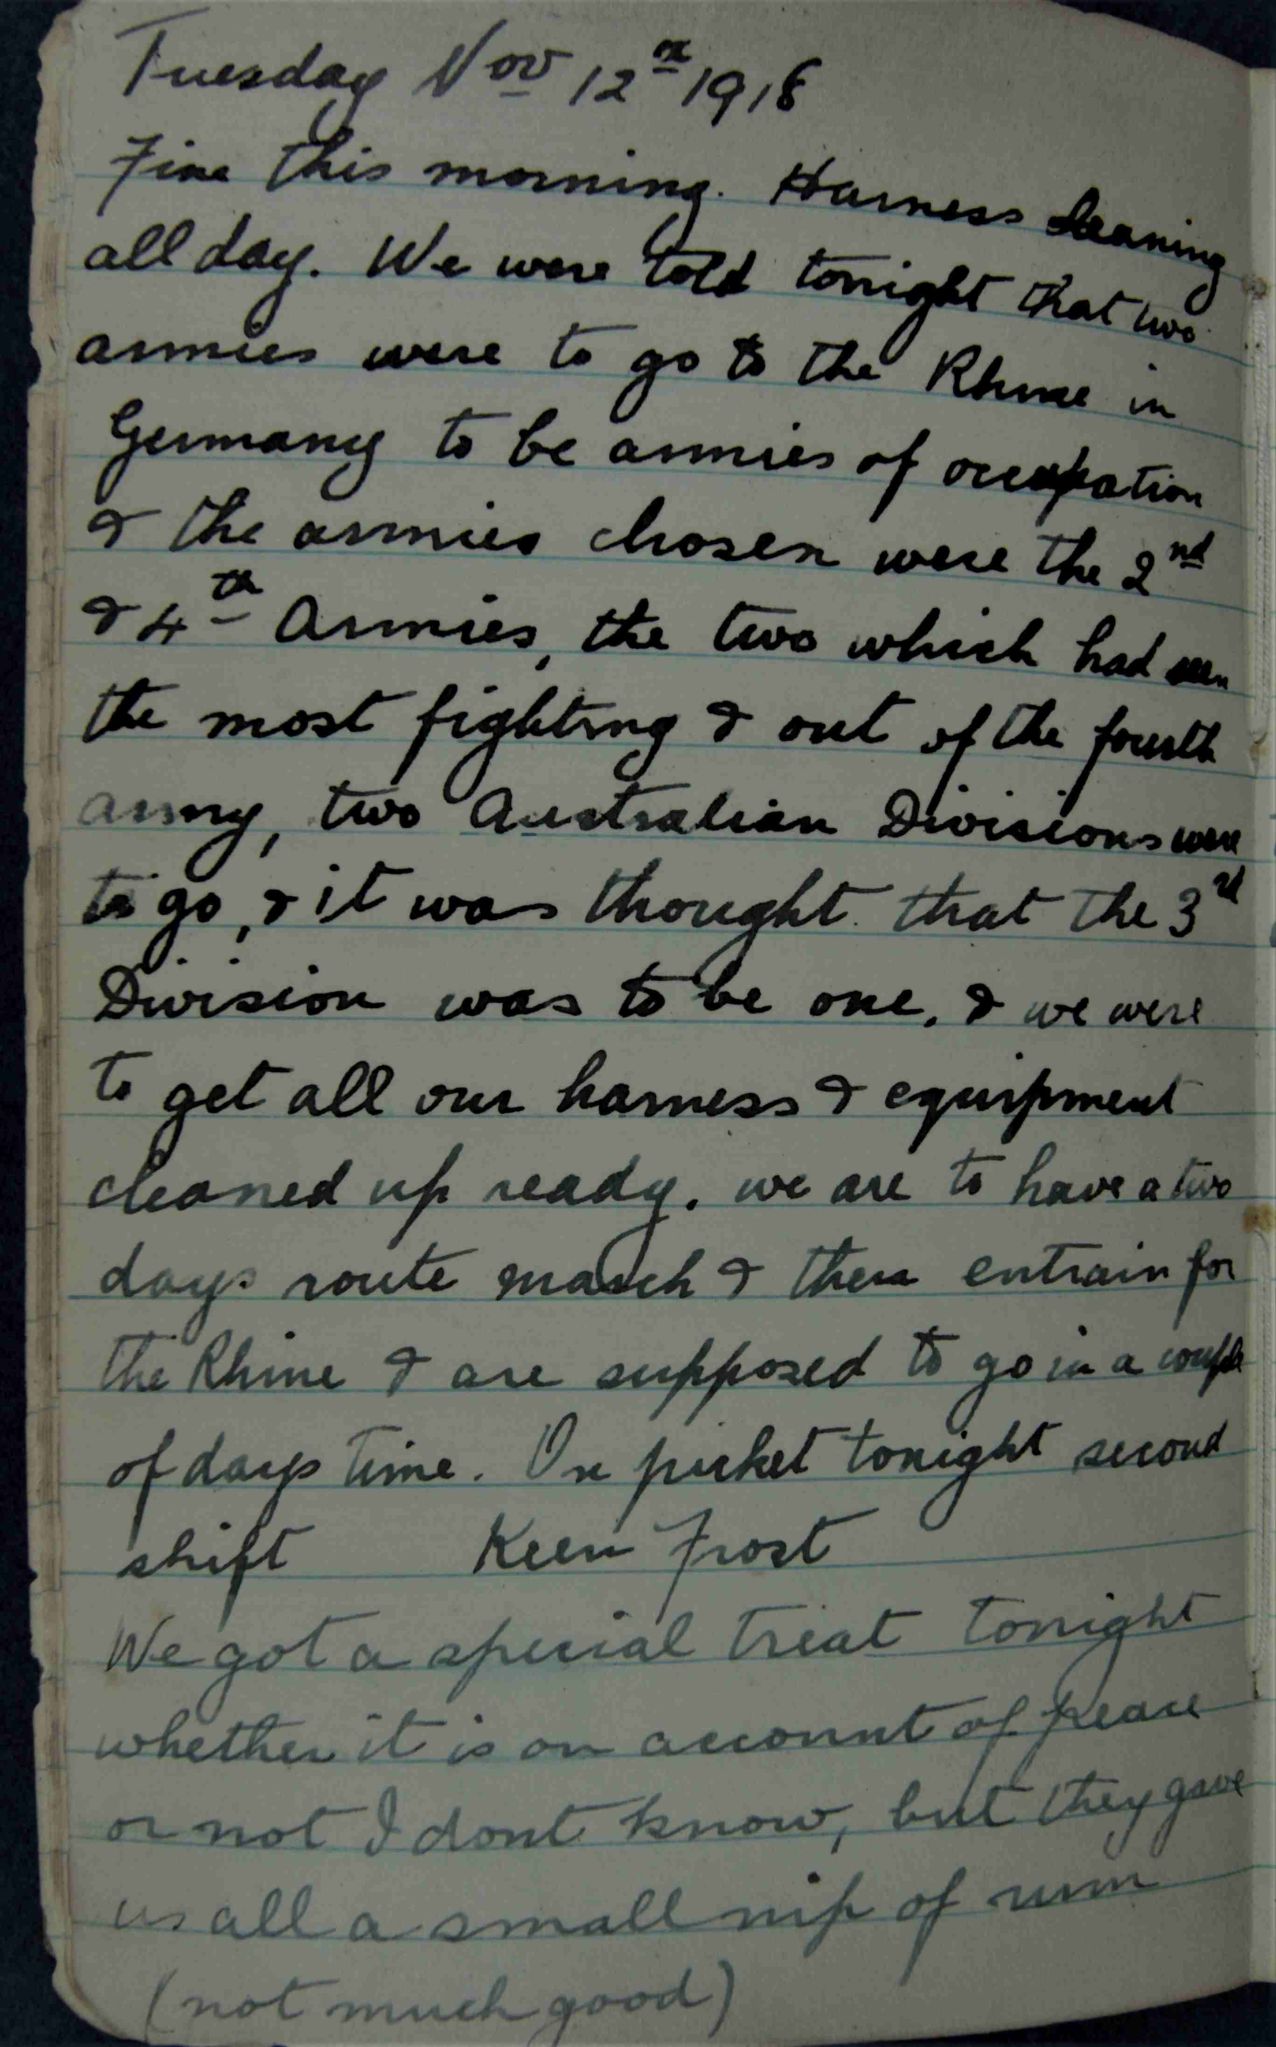 Tuesday Nov 12th 1918
Fine this morning. Harness cleaning
all day. We were told tonight that two
armies were to go to the Rhine in
Germany to be armies of occupation
& the armies chosen were the 2nd
& 4th Armies, the two which had seen
the most fighting & out of the fourth
army, two Australian Divisions were
to go, & it was thought that the 3rd
Division was to be one, & we were
to get all our harness & equipment
cleaned up ready. we are to have a two
days route march & then entrain for
the Rhine & are supposed to go in a couple
of days time. On picket tonight second
shift Keen Frost
We got a special treat tonight
whether it is on account of peace
or not I dont know, but they gave
us all a small nip of rum
(not much good)